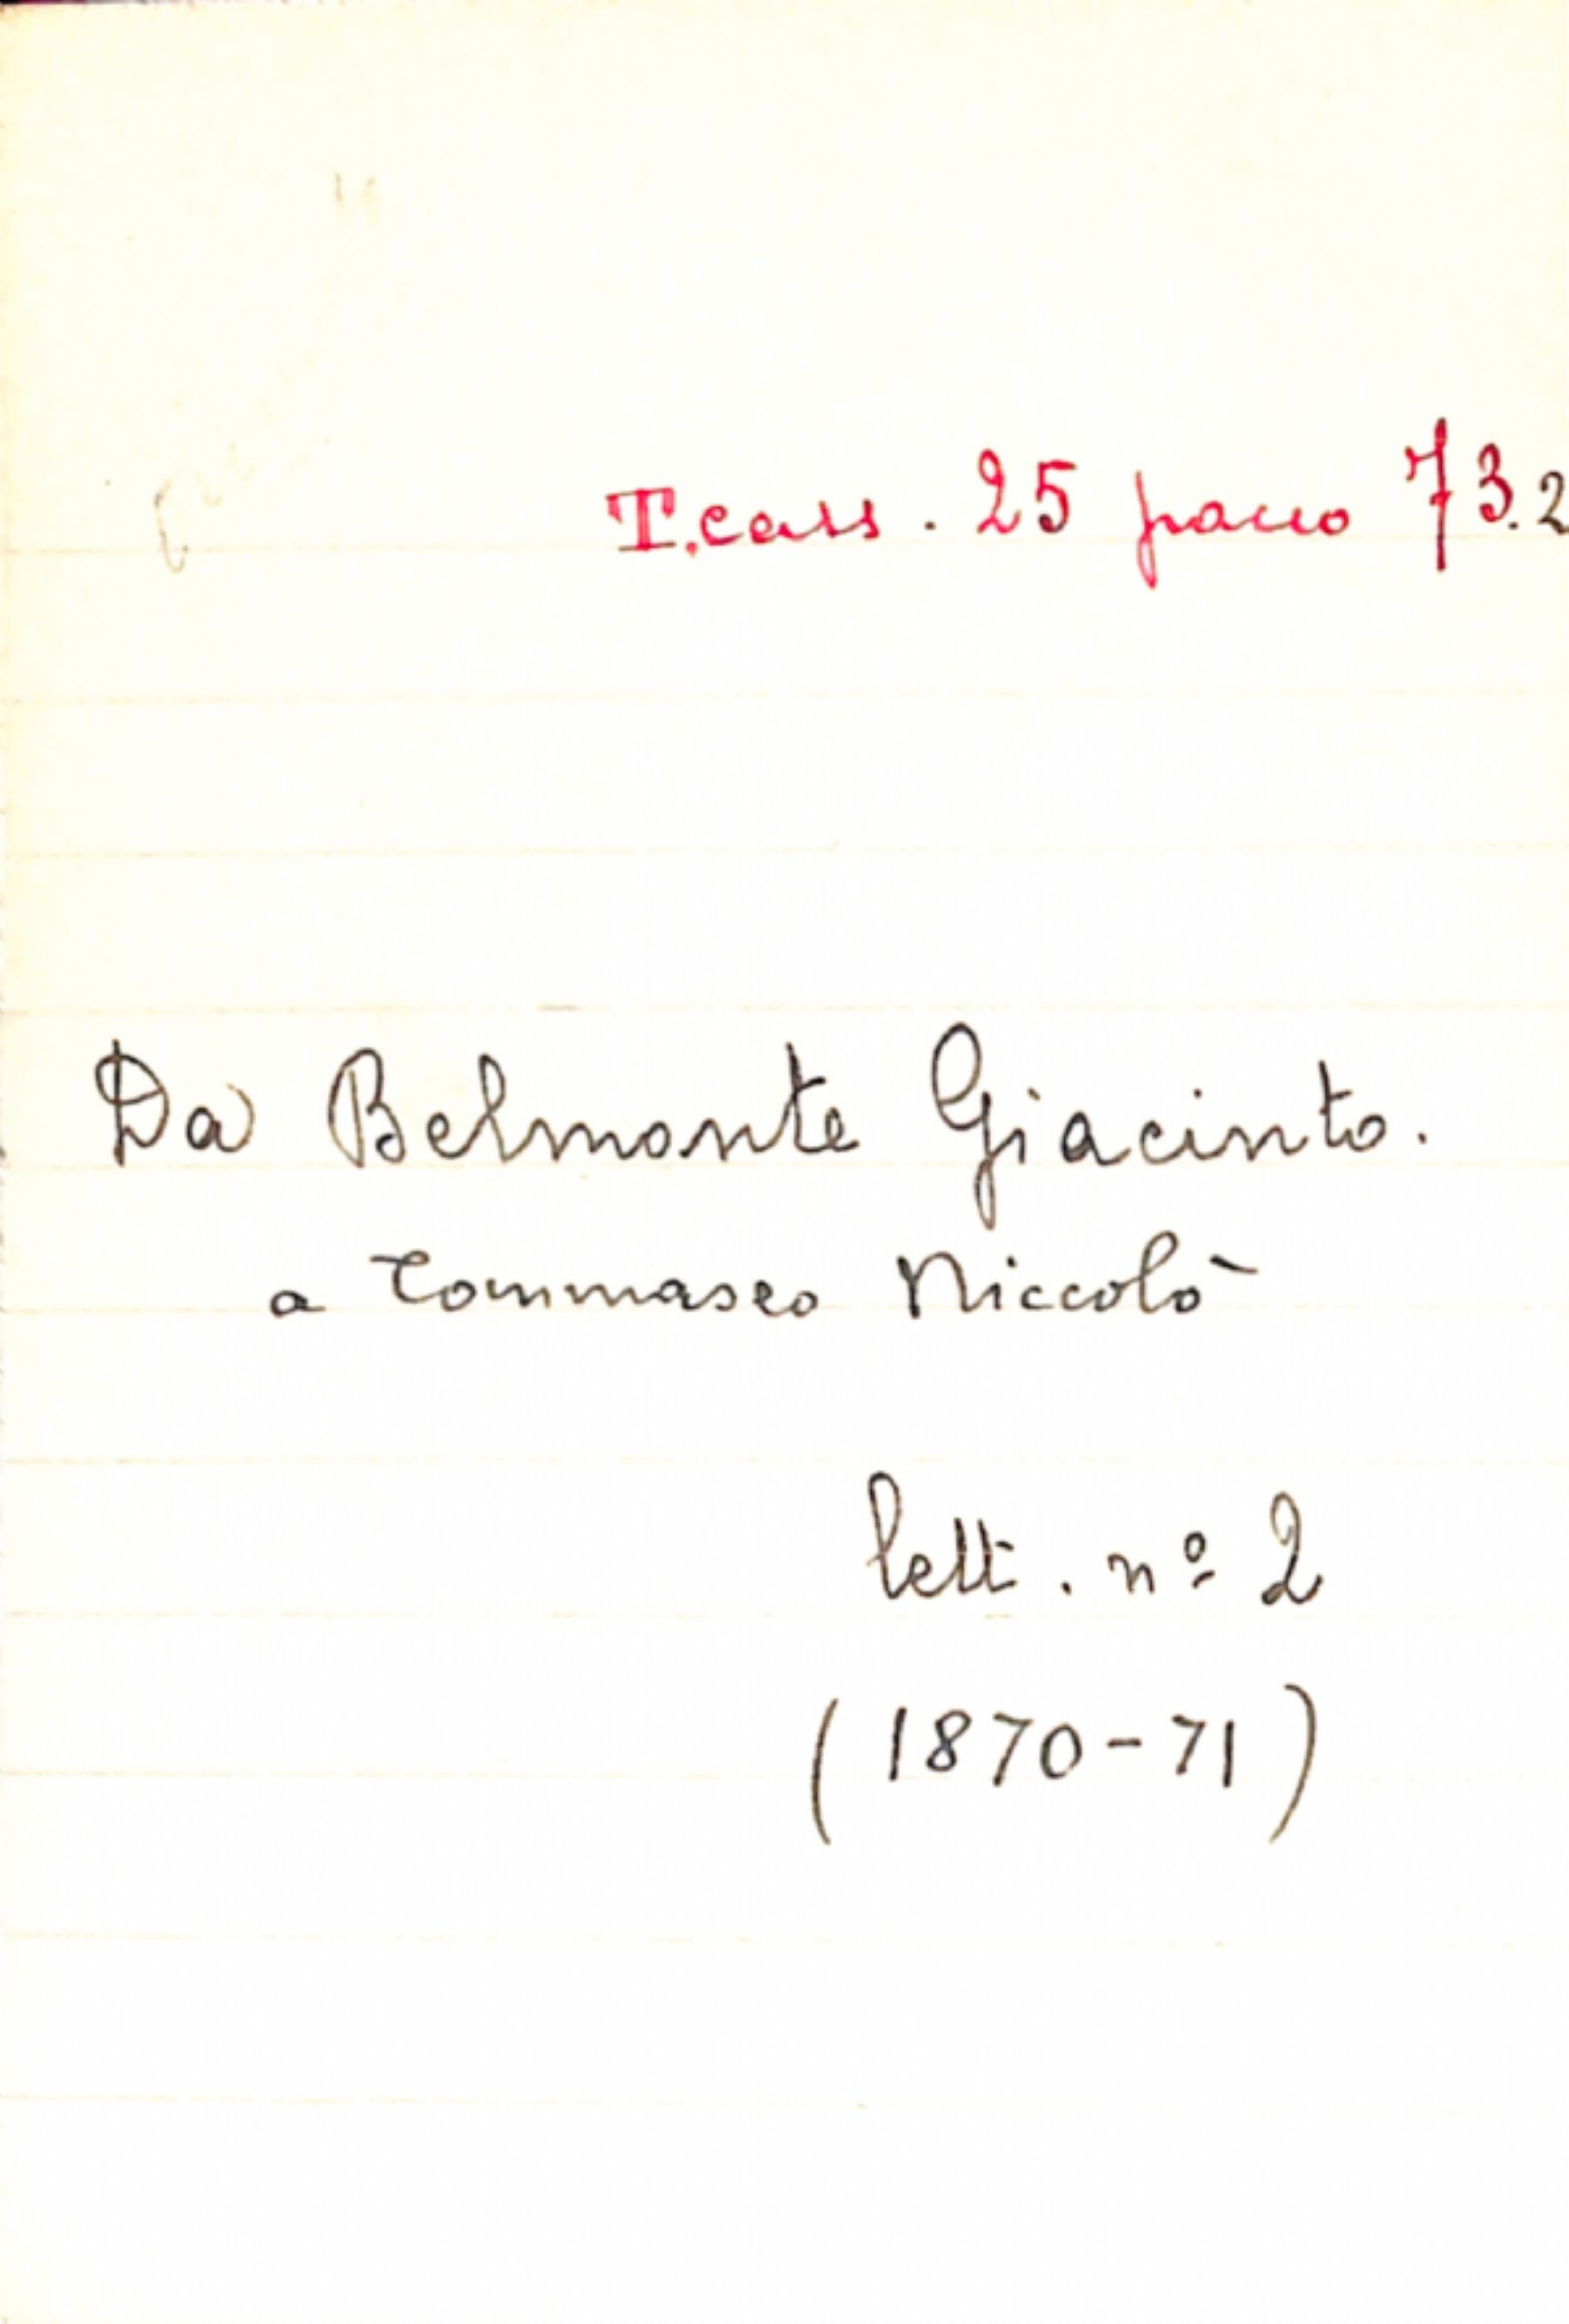 T.cass. 25 pacco 73.2
Da Belmonte Giacinto.
a Tommaseo Niccolò
lett. nº 2
(1870-71)